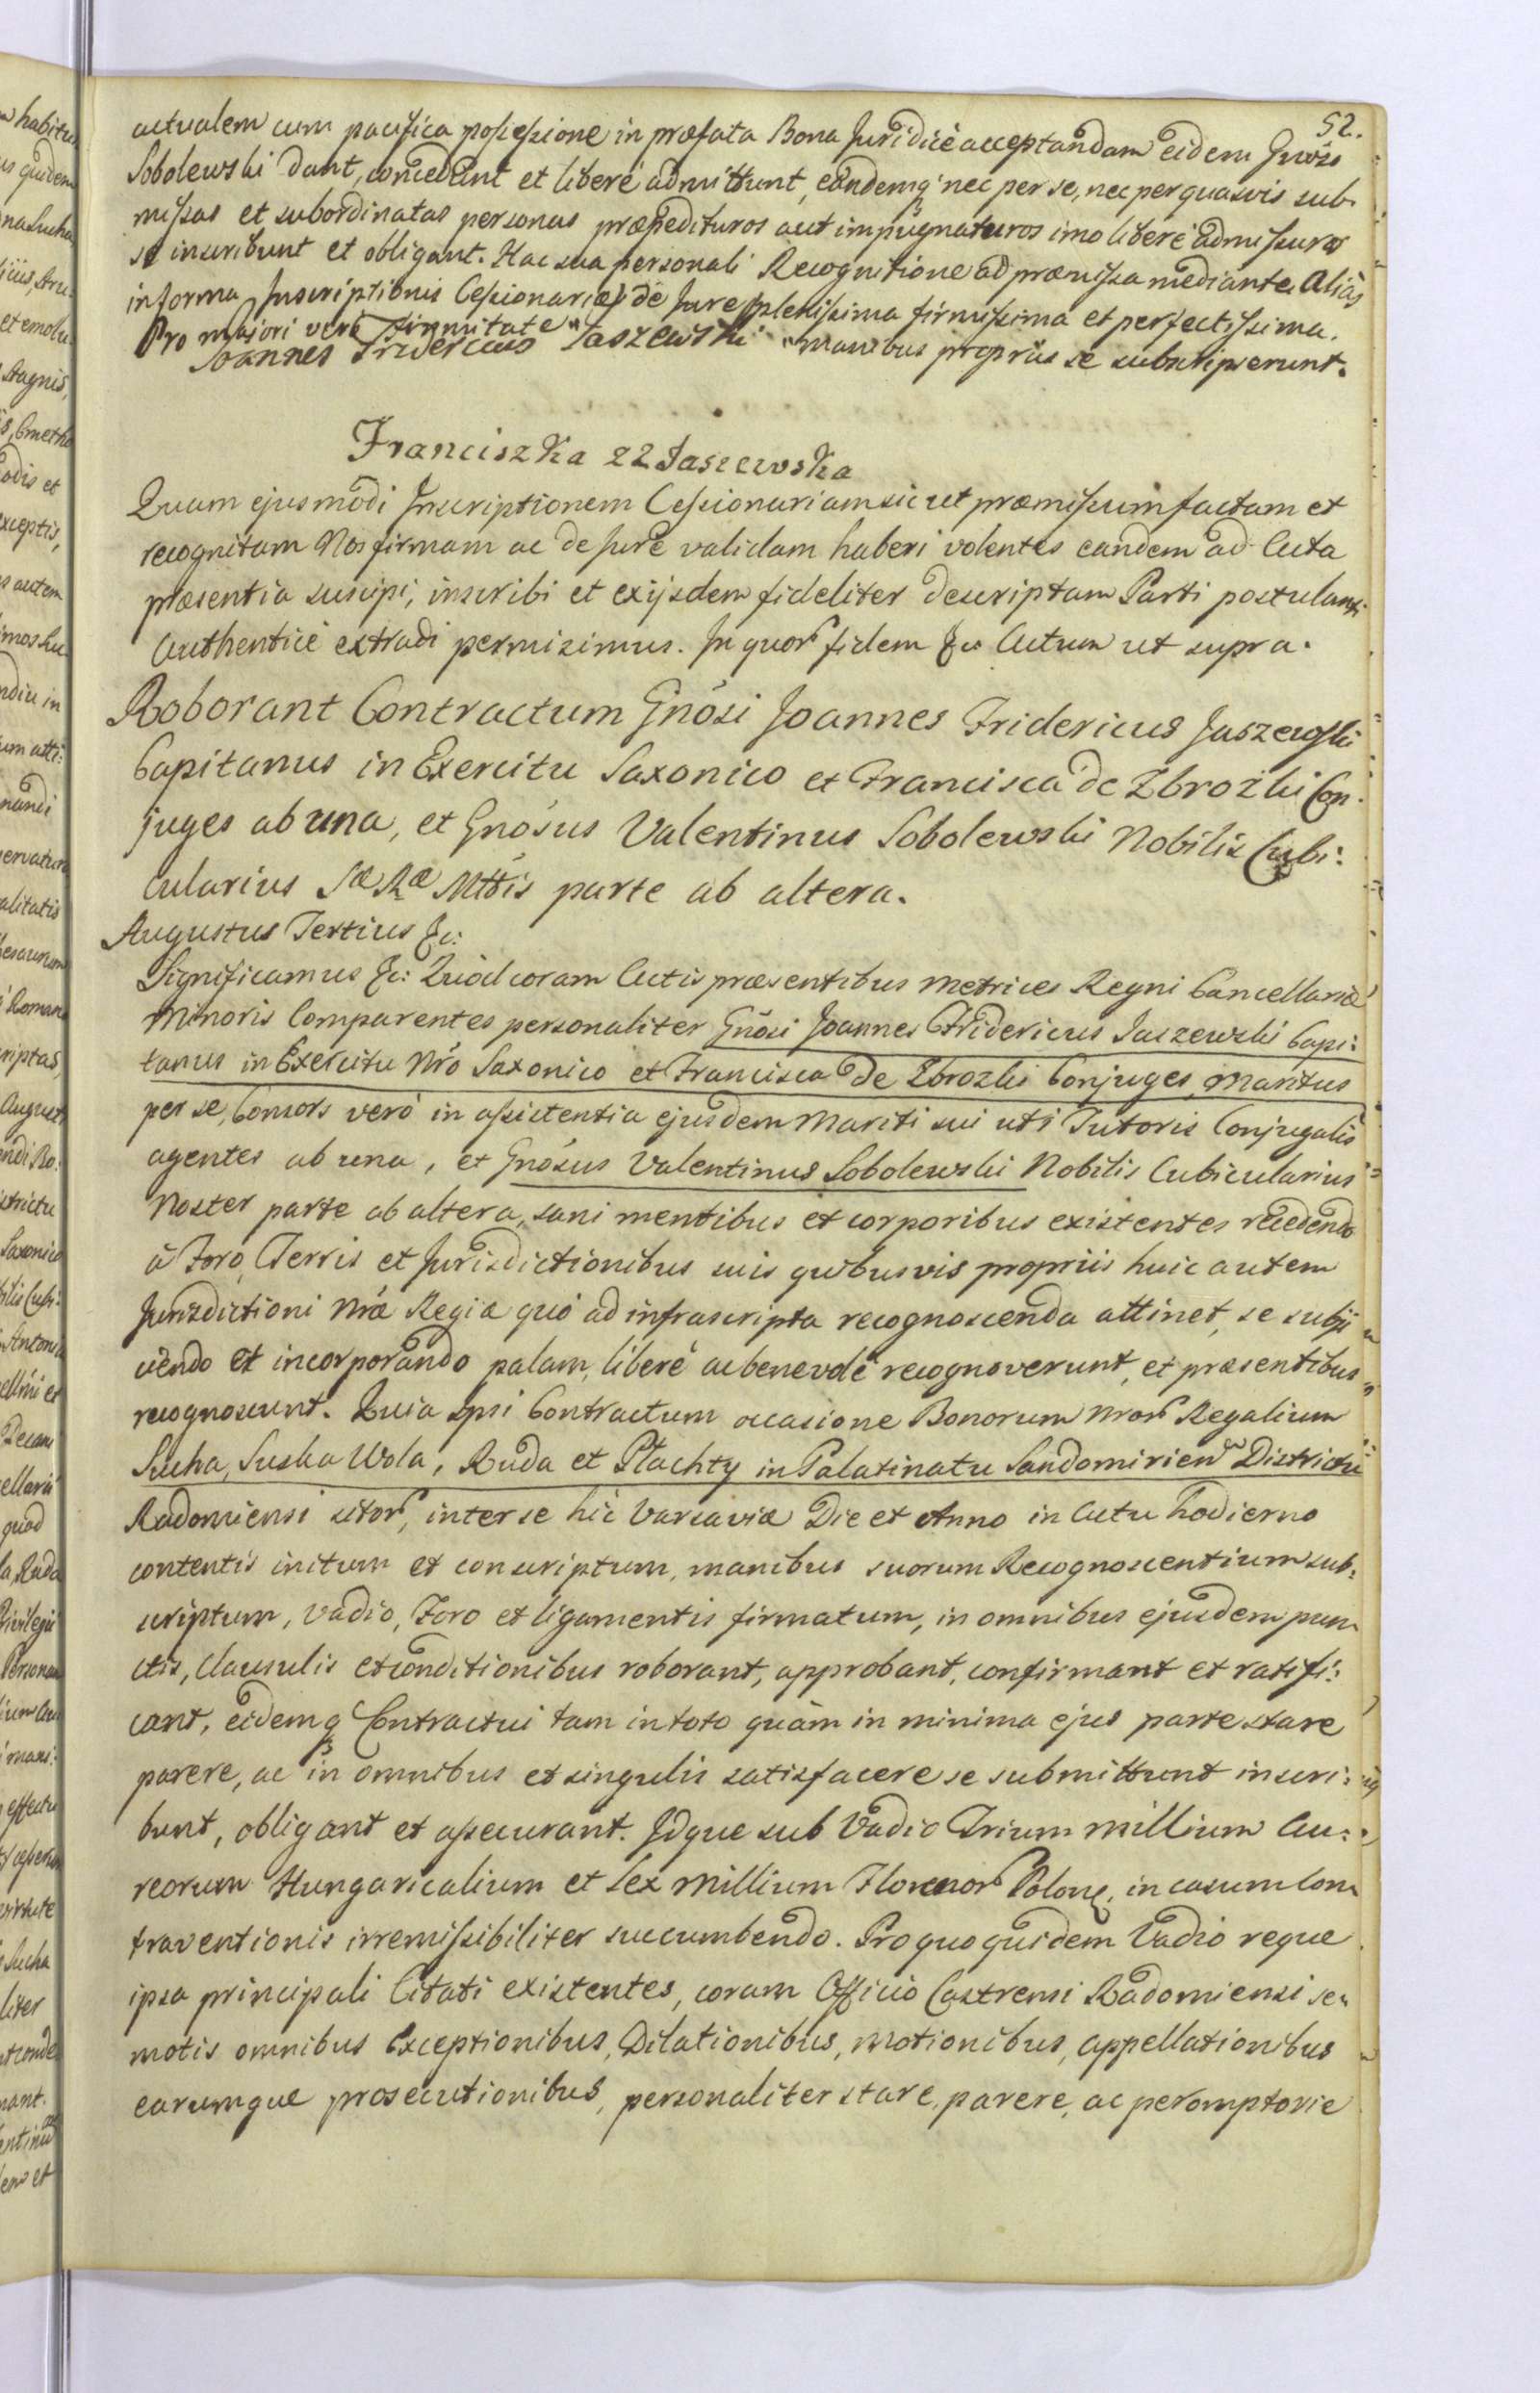 52.
actualem cum pacifica possessione in præfata Bona Juridicè acceptandam eidem Gnoso
Sobolewski dant, concedunt et liberè admittunt, eandemq nec per se, nec per quasvis sub-
missas et subordinatas personas præpedituros aut impugnaturos imo liberè admissuros
se inscribunt et obligant. Hac sua personali Recognitione ad præmissa mediante. Aliàs
in forma Inscriptionis Cessionariæ de Jure plenissima firmissima et perfectissima.
Pro majori verò firmitate manibus propriis se subscripserunt.
Joannes Fridericus Jaszewski
Franciszka z Z Jaszewska
Quam ejusmodi Inscriptionem Cessionariam sic ut præmissum factam et
recognitam Nos firmam ac de Jure validam haberi volentes eandem ad Acta
præsentia suscipi, inscribi et ex ijsdem fideliter descriptam Parti postulanti
Authenticè extradi permisimus. In quor fidem &c Actum ut supra.
Roborant Contractum Gnosi Joannes Fridericus Jaszewski
Capitanus in Exercitu Saxonico et Francisca de Zbrozki Con-
juges ab una, et Gnosus Valentinus Sobolewski Nobilis Cubi:
cularius Sæ Ræ Mttis parte ab altera.
Augustus Tertius &c:
Significamus &c: Quòd coram Actis præsentibus Metrices Regni Cancellariæ
Minoris Comparentes personaliter Gnosi Joannes Fridericus Jaszewski Capi:
tanus in Exercitu Nro Saxonico et Francisca de Zbrozki Conjuges, Maritus
per se, Consors verò in assistentia ejusdem Mariti sui uti Tutoris Conjugalis
agentes ab una, et Gnosus Valentinus Sobolewski Nobilis Cubicularius
Noster parte ab altera, sani mentibus et corporibus existentes recedendo
à Foro, Terris et Jurisdictionibus suis quibusvis propriis huic autem
Jurisdictioni Nræ Regiæ quò ad infrascripta recognoscenda attinet, se subji
ciendo et incorporando palam, liberè ac benevolè recognoverunt, et præsentibus
recognoscunt. Quia ipsi Contractum occasione Bonorum Nror Regalium
Sucha, Suska Wola, Ruda et Płachty in Palatinatu Sandomirien Districtu
Radomiensi sitor, inter se hic Varsaviæ Die et Anno in Actu hodierno
contentis initum et conscriptum, manibus suorum Recognoscentium sub:
scriptum, Vadio, Foro et ligamentis firmatum, in omnibus ejusdem pun
ctis, Clausulis et conditionibus roborant, approbant, confirmant et ratifi:
cant, eidemq Contractui tam in toto quàm in minima ejus parte stare
parere, ac in omnibus et singulis satisfacere se submittunt inscri:
bunt, obligant et assecurant. Idque sub Vadio Trium millium Au:
reorum Hungaricalium et Sex millium Florenor Polon, in casum Con
traventionis irremissibiliter succumbendo. Pro quo quidem Vadio reque
ipsa principali Citati existentes, coram Officio Castrensi Radomiensi se
motis omnibus Exceptionibus, Dilationibus, Motionibus, appellationibus
earumque prosecutionibus, personaliter stare, parere, ac peromptorie